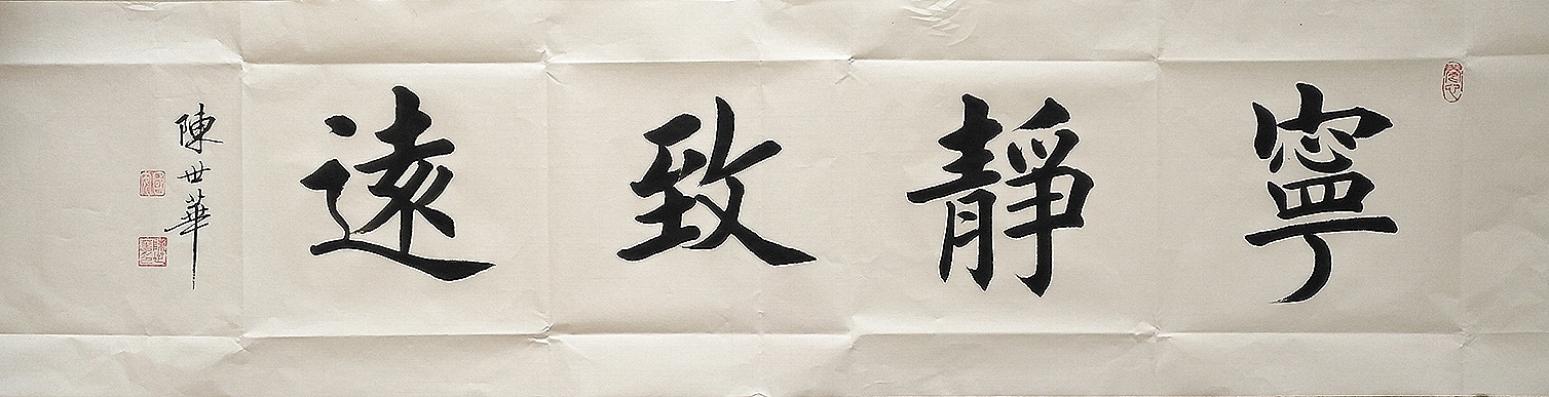 寧靜致遠
陳世華